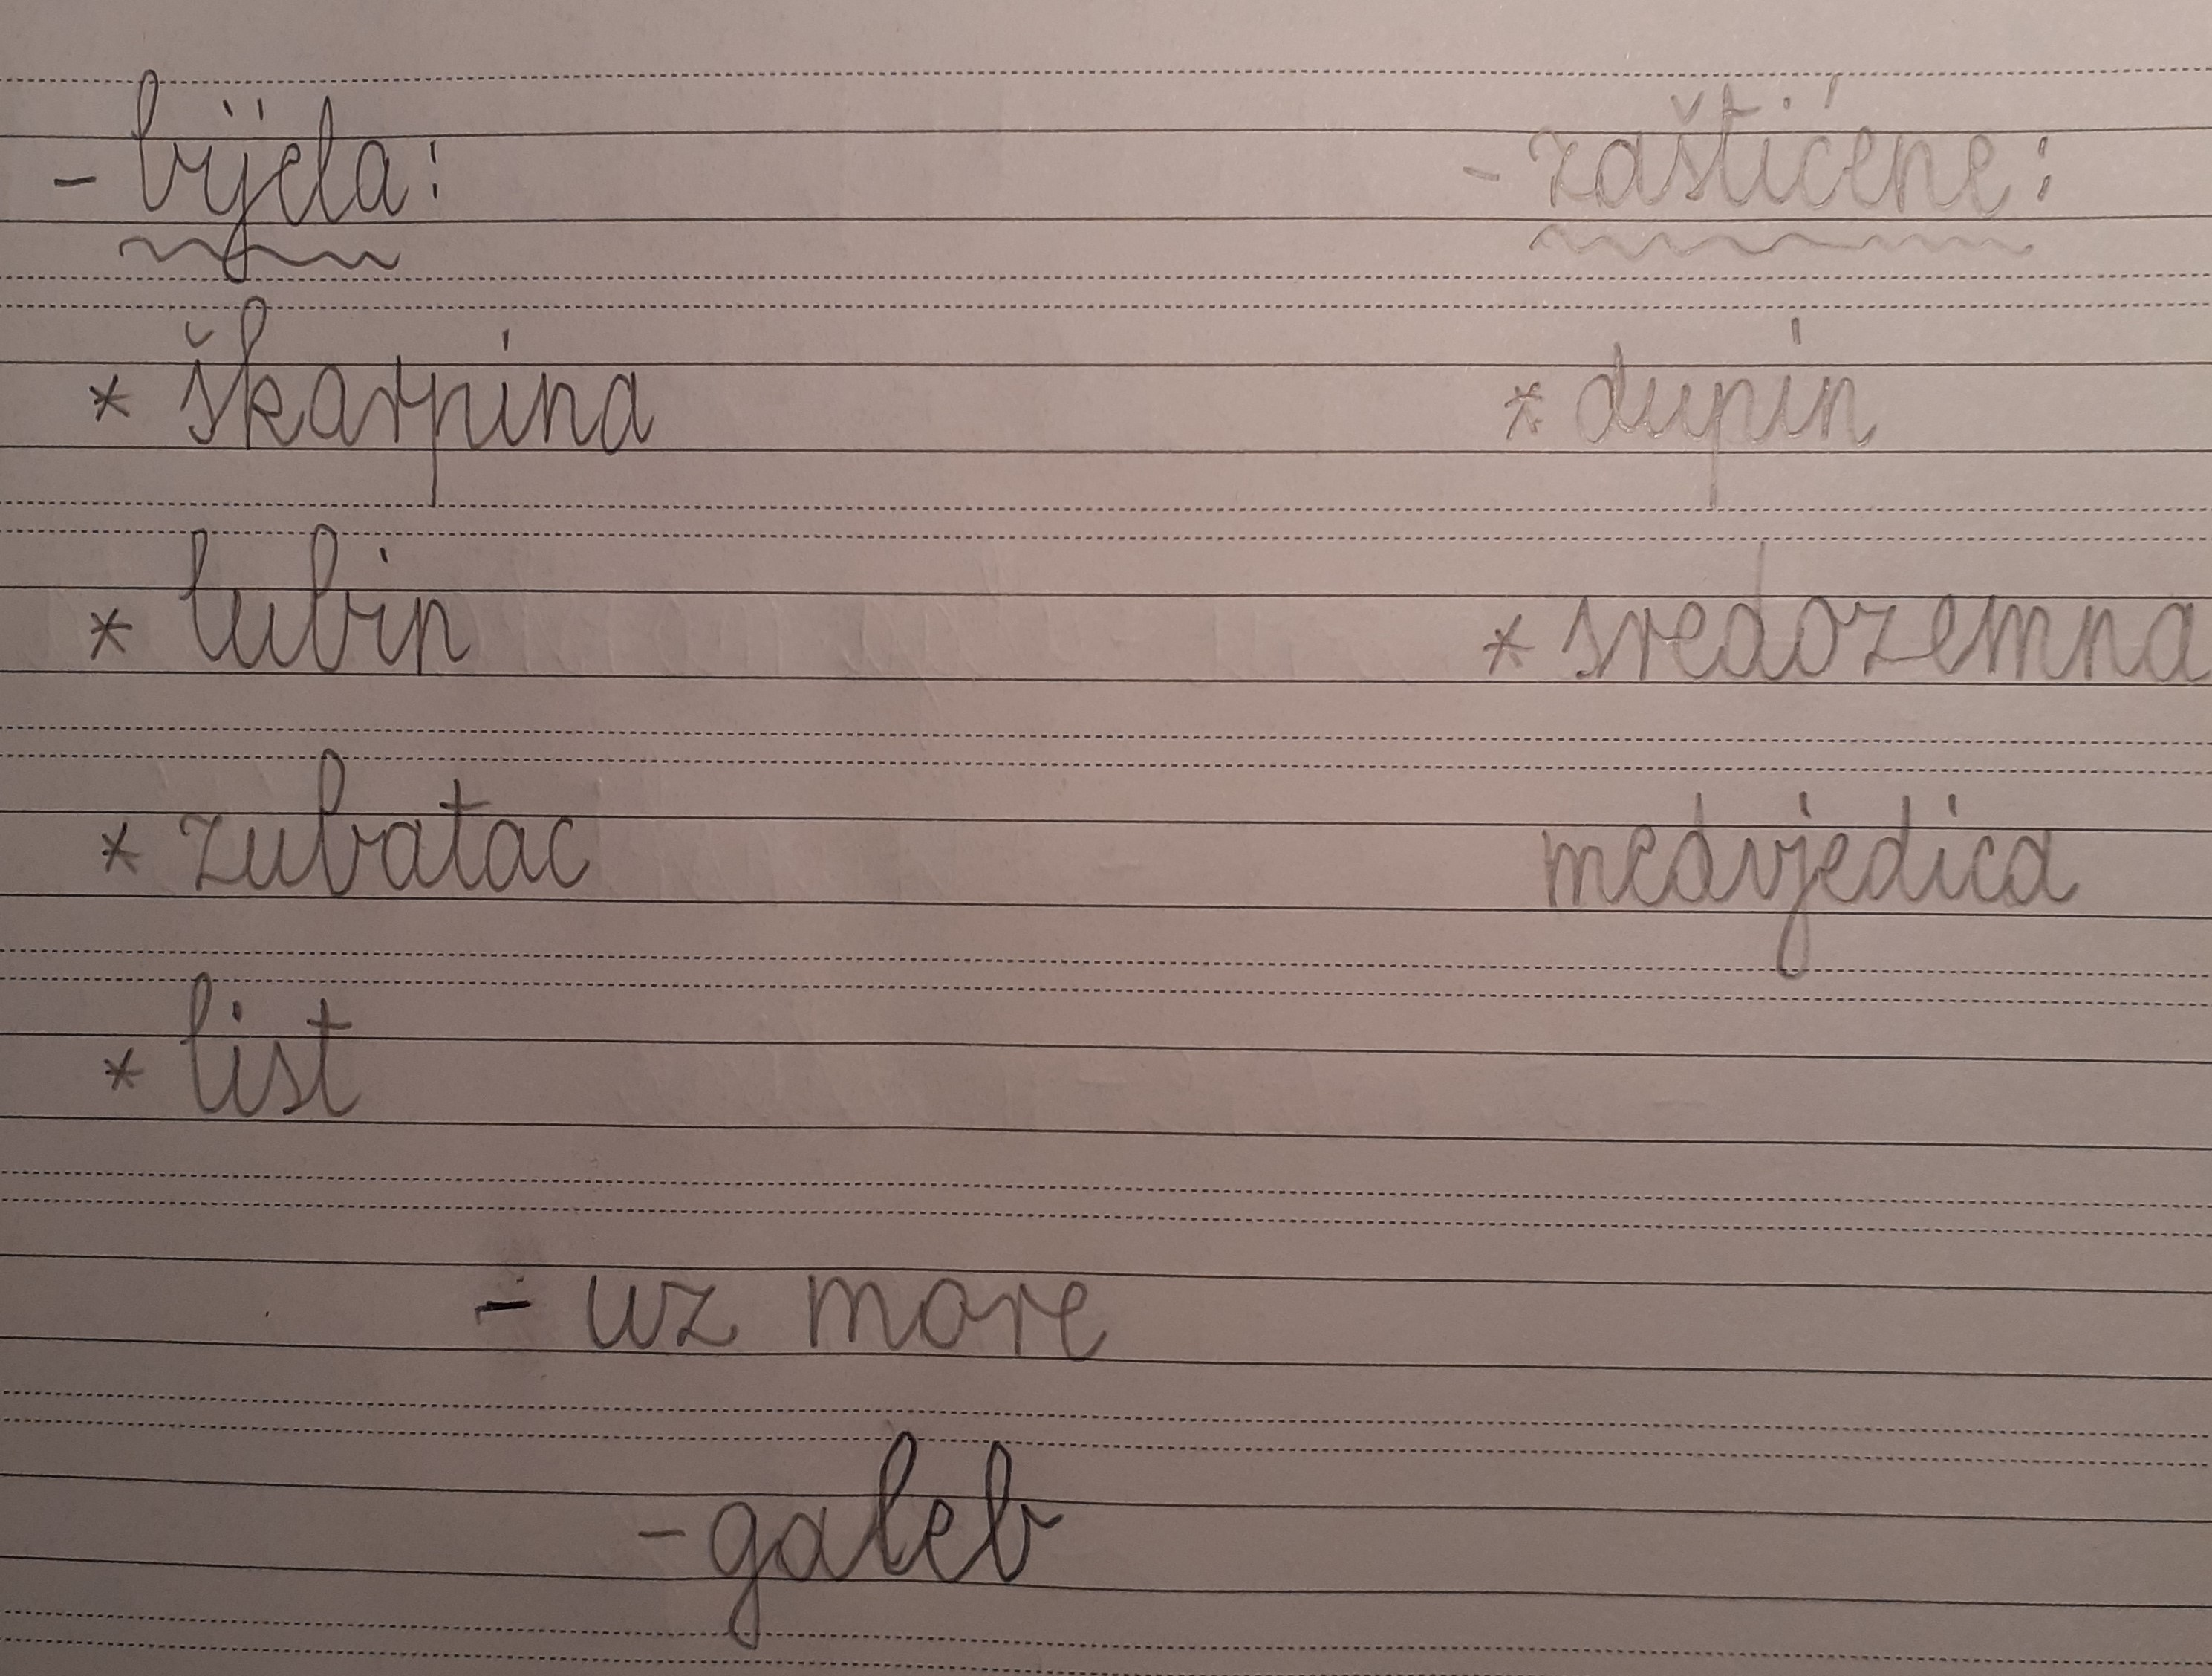 - bijela:
* škarpina
* lubin
* zubatac
* list
- zaštićene:
* dupin
* sredozemna
medvjedica
- uz more
- galeb